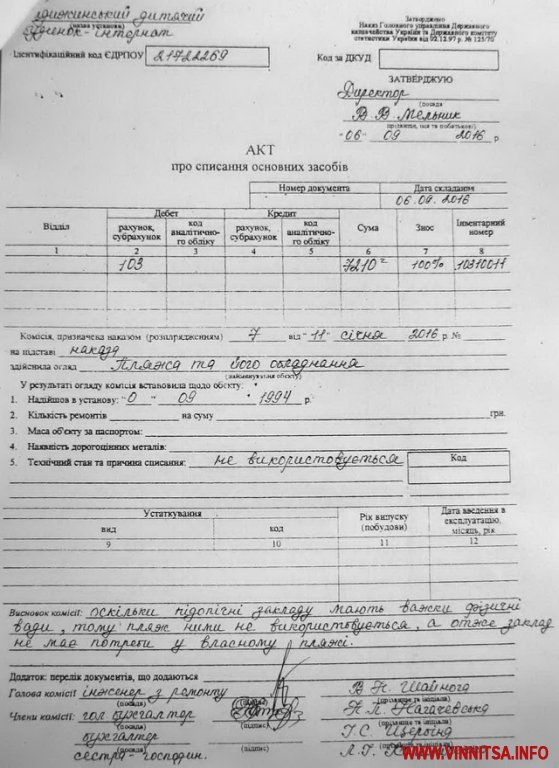 дитячий
(назва установи)
будинок-інтернат
Затверджено
Наказ Головного управління Державного
казначейства України та Державного комітету
статистики України від 02.12.97 р. № 125/70
Ідентифікаційний код ЄДРПОУ 21722269
Код за ДКУД
ЗАТВЕРДЖУЮ
Директор
(посада)
В В Мельник
(прізвище, імя та побатькові)
"06" 09 2016 р
АКТ
про списання основних засобів
Номер документа Дата складання
06.09.2016
Відділ Дебет Кредит Сума Знос Інвентарний номер
рахунок, субрахунок код аналітичного обліку рахунок, субрахунок код аналітичного обліку
1 2 3 4 5 6 7 8
103 7210 100% 10310011
Комісія, призначена наказом (розпорядженням) 7 від "11" січня 2016 р. №
на підставі наказу
здійснила огляд Пляжа та його обладнання
(найменування об'єкту)
У результаті огляду комісія встановила щодо об'єкту:
1. Надійшов в установу: "0" 09 1994 р.
2. Кількість ремонтів на суму грн.
3. Маса об'єкту за паспортом:
4. Наявність дорогоцінних металів:
5. Технічний стан та причина списання: не використовується Код
Устаткування Рік випуску (побудови) Дата введення в експлуатацію, місяць, рік
вид код
9 10 11 12
Висновок комісії: оскільки підопічні закладу мають важки фізичні
вади, тому пляж ними не використовується, а отже заклад
не має потреби у власному пляжі.
Додаток: перелік документів, що додаються
Голова комісії інженер з ремонту В Н Шайнога
(посада) (прізвище та ініціали)
Члени комісії: гол. бухгалтер Н. П. Нагачевська
(посада) (підпис) (прізвище та ініціали)
бухгалтер Г. С.
(посада) (підпис) (прізвище та ініціали)
сестра-господин. Л. Г.
WWW.VINNITSA.INFO